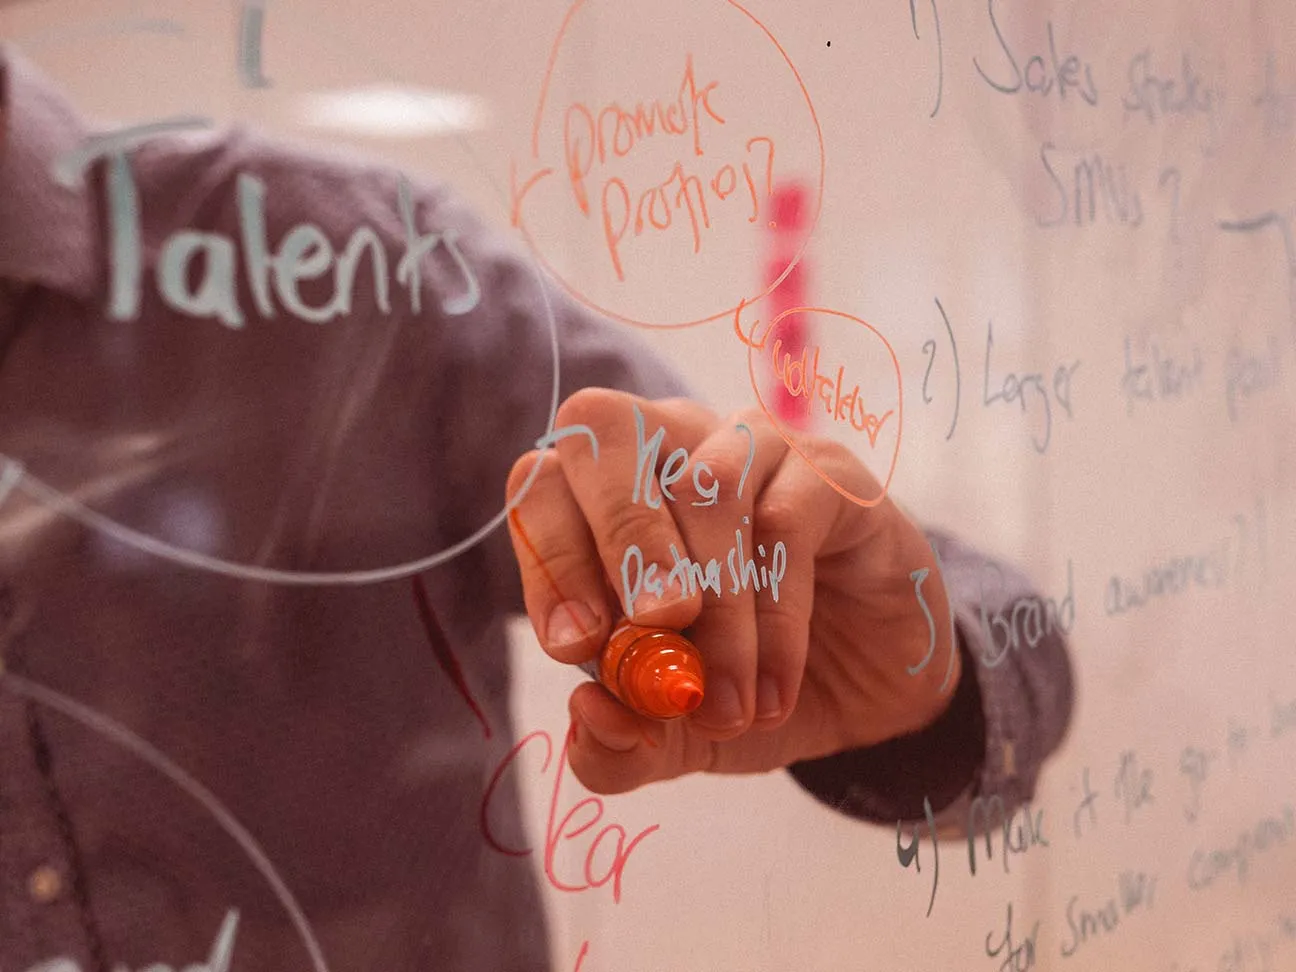 Talents
promote
profiles?
Yes?
Partnership
Clear
1) Sales strategy
SMVs?
2) Larger talent pool
3) Brand awareness?
4) Make it the go-to
for smaller companies